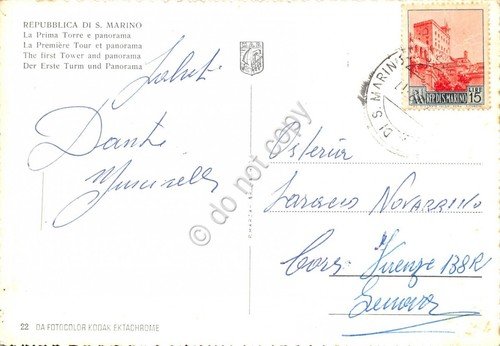 REPUBBLICA DI S. MARINO
La Prima Torre e panorama
La Première Tour et panorama
The first Tower and panorama
Der Erste Turm und Panorama
Saluti
Dante
Osteria
Navarrino
Cors. Firenze 138R
Genova
22 DA FOTOCOLOR KODAK EKTACHROME
DI S. MARINO
REP. DI S. MARINO
LIRE
15
do not copy